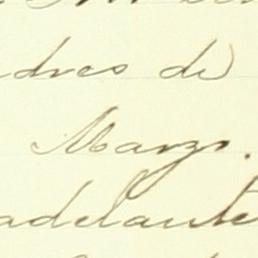 dres de
Marzo.
adelante